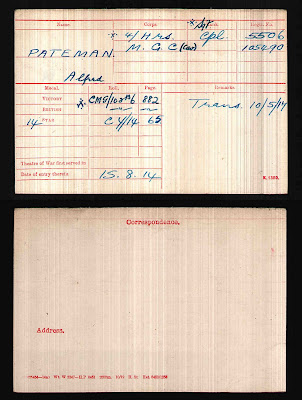 Name. Corps. Rank. Regtl. No.
* 4/Hrs. * Sgt Cpl. 5506
PATEMAN. M. G. C (Cav) 105490
Alfred
Medal. Roll. Page. Remarks.
VICTORY * 882 Trans. 10/5/19
BRITISH
14 STAR C4/14 65
Theatre of War first served in
Date of entry therein 15.8.14
K. 1380.
Correspondence.
Address.